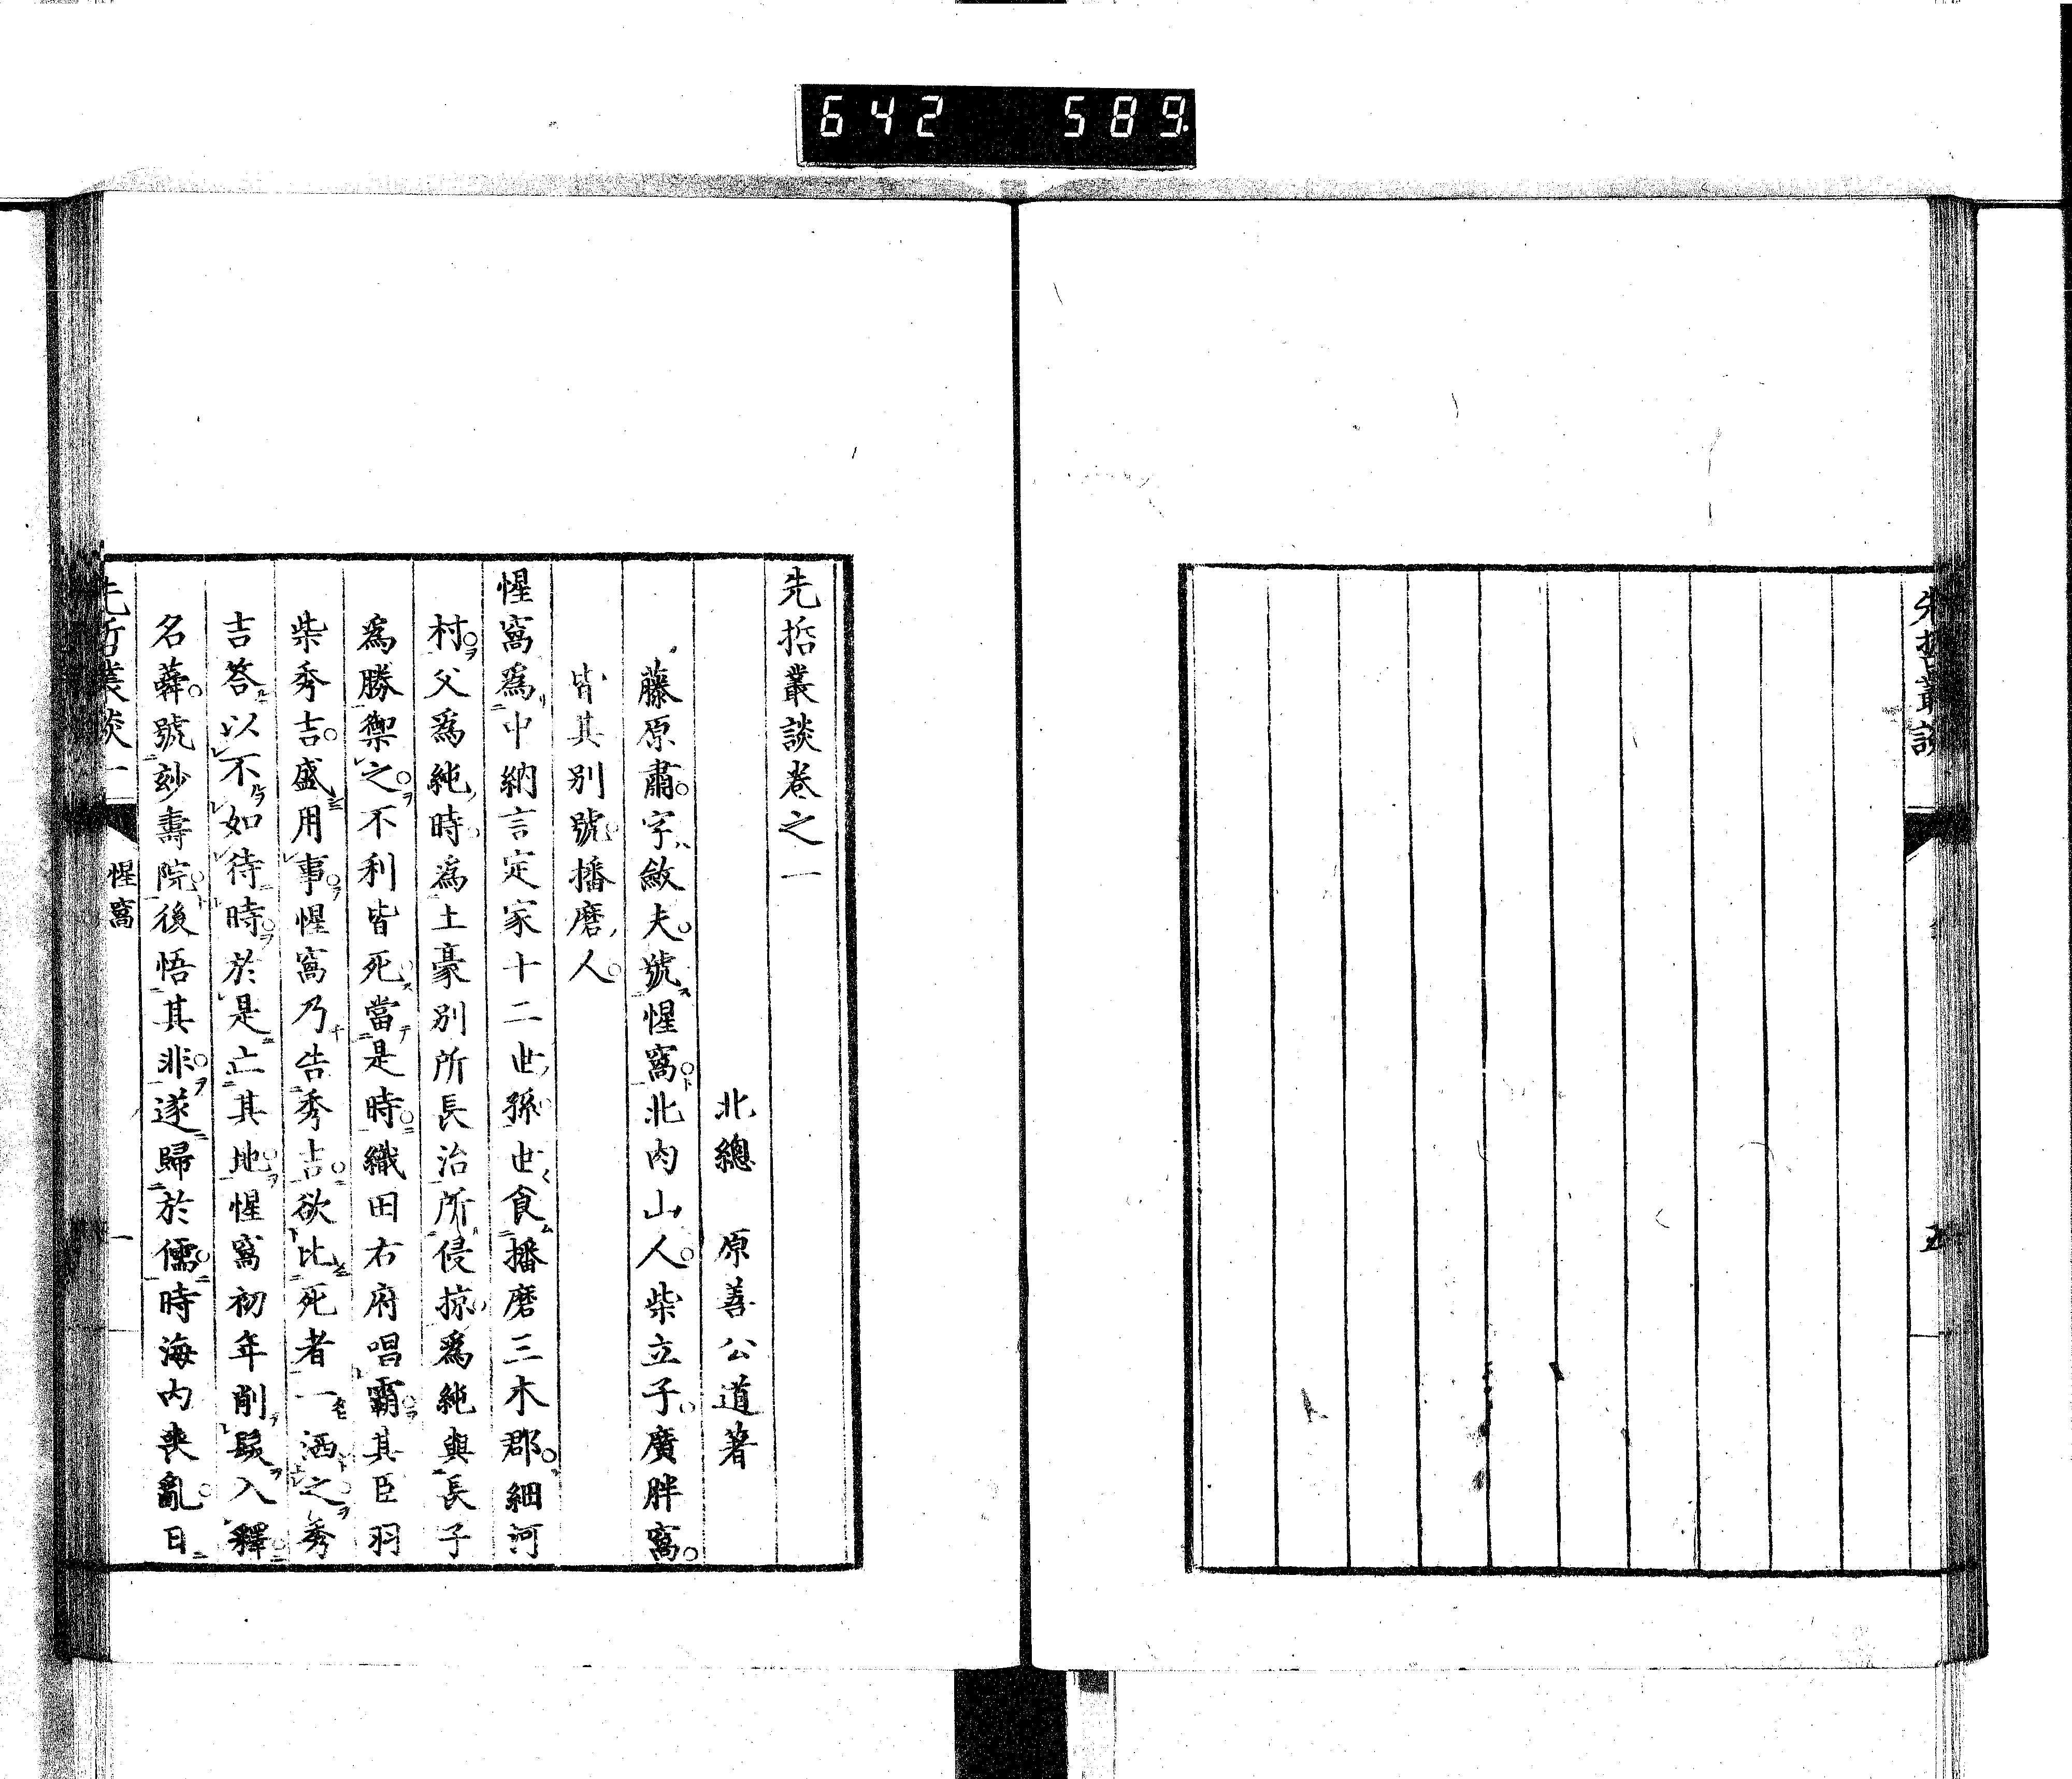 642 589
先哲叢談
五
先哲叢談卷之一
北總 原善公道著
藤原肅。字斂夫。號惺窩。北肉山人。柴立子。廣胖窩。
皆其別號。播磨人。
惺窩爲中納言定家十二世孫。世食播磨三木郡。細河
村。父爲純時。爲土豪別所長治所侵掠。爲純與長子
爲勝禦之。不利皆死。當是時。織田右府唱霸。其臣羽
柴秀吉。盛用事。惺窩乃告秀吉。欲比死者一洒之。秀
吉答以不如待時。於是亡其地。惺窩初年削髮入釋。
名蕣。號妙壽院。後悟其非。遂歸於儒。時海內喪亂。日
先哲叢談一
惺窩
一